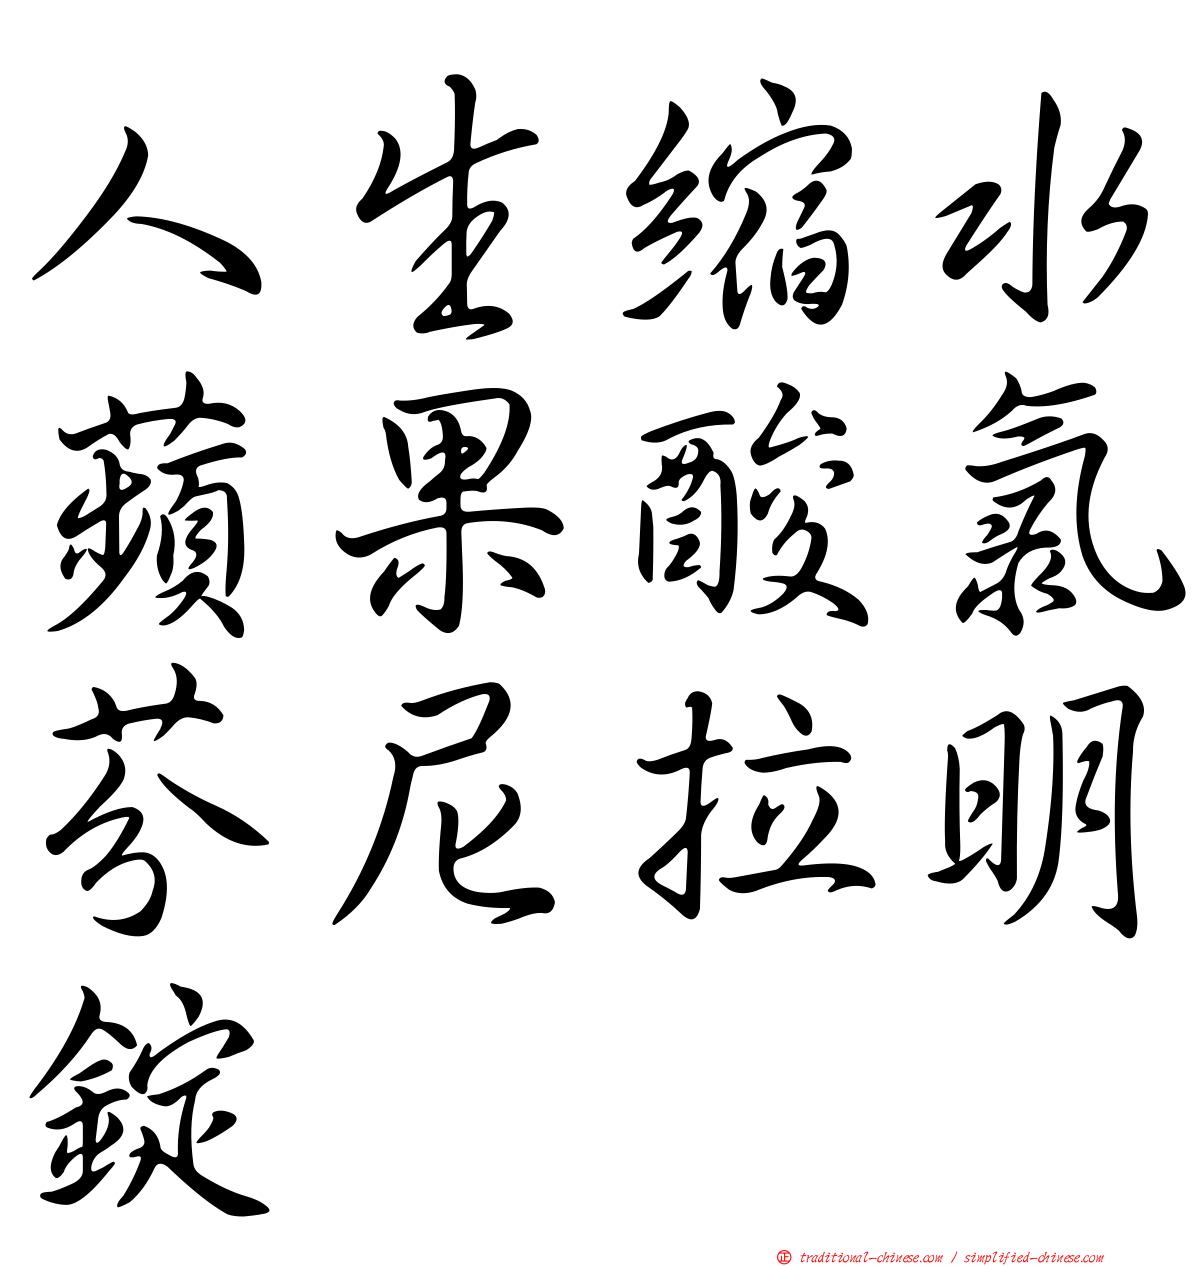 人生縮水
蘋果酸氯
芬尼拉明
錠
㊣ traditional-chinese.com / simplified-chinese.com